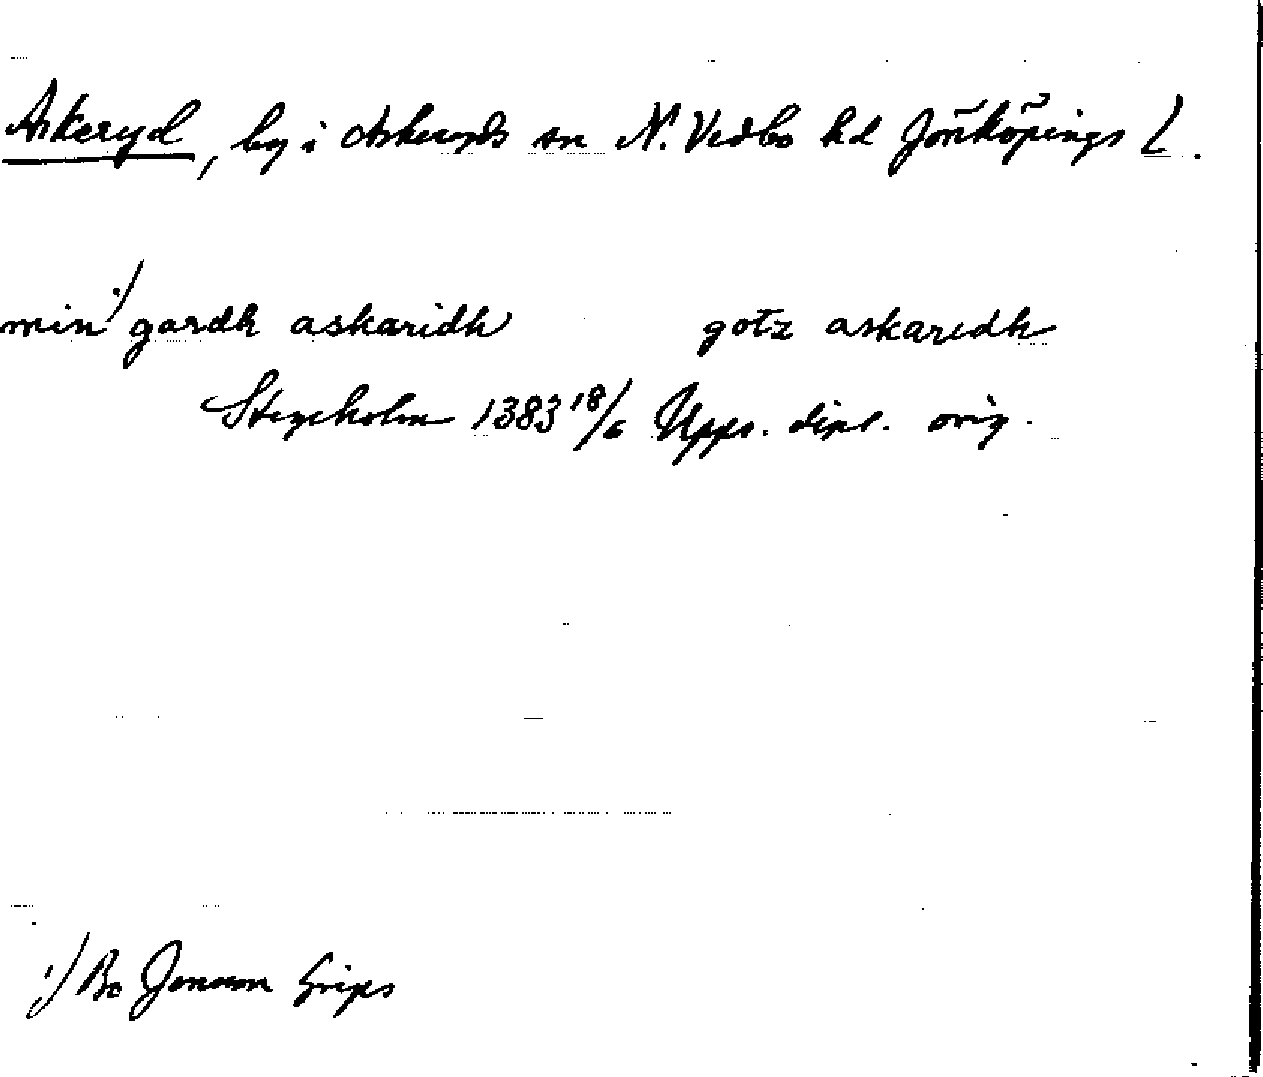 Askeryd, by i Askeryds sn N. Vedbo hd Jönköpings L.
min 1) gardh askaridh gotz askaredh
Stegeholm 1383 18/6 Upps. dipl. orig.
1) Bo Jonsson Grips